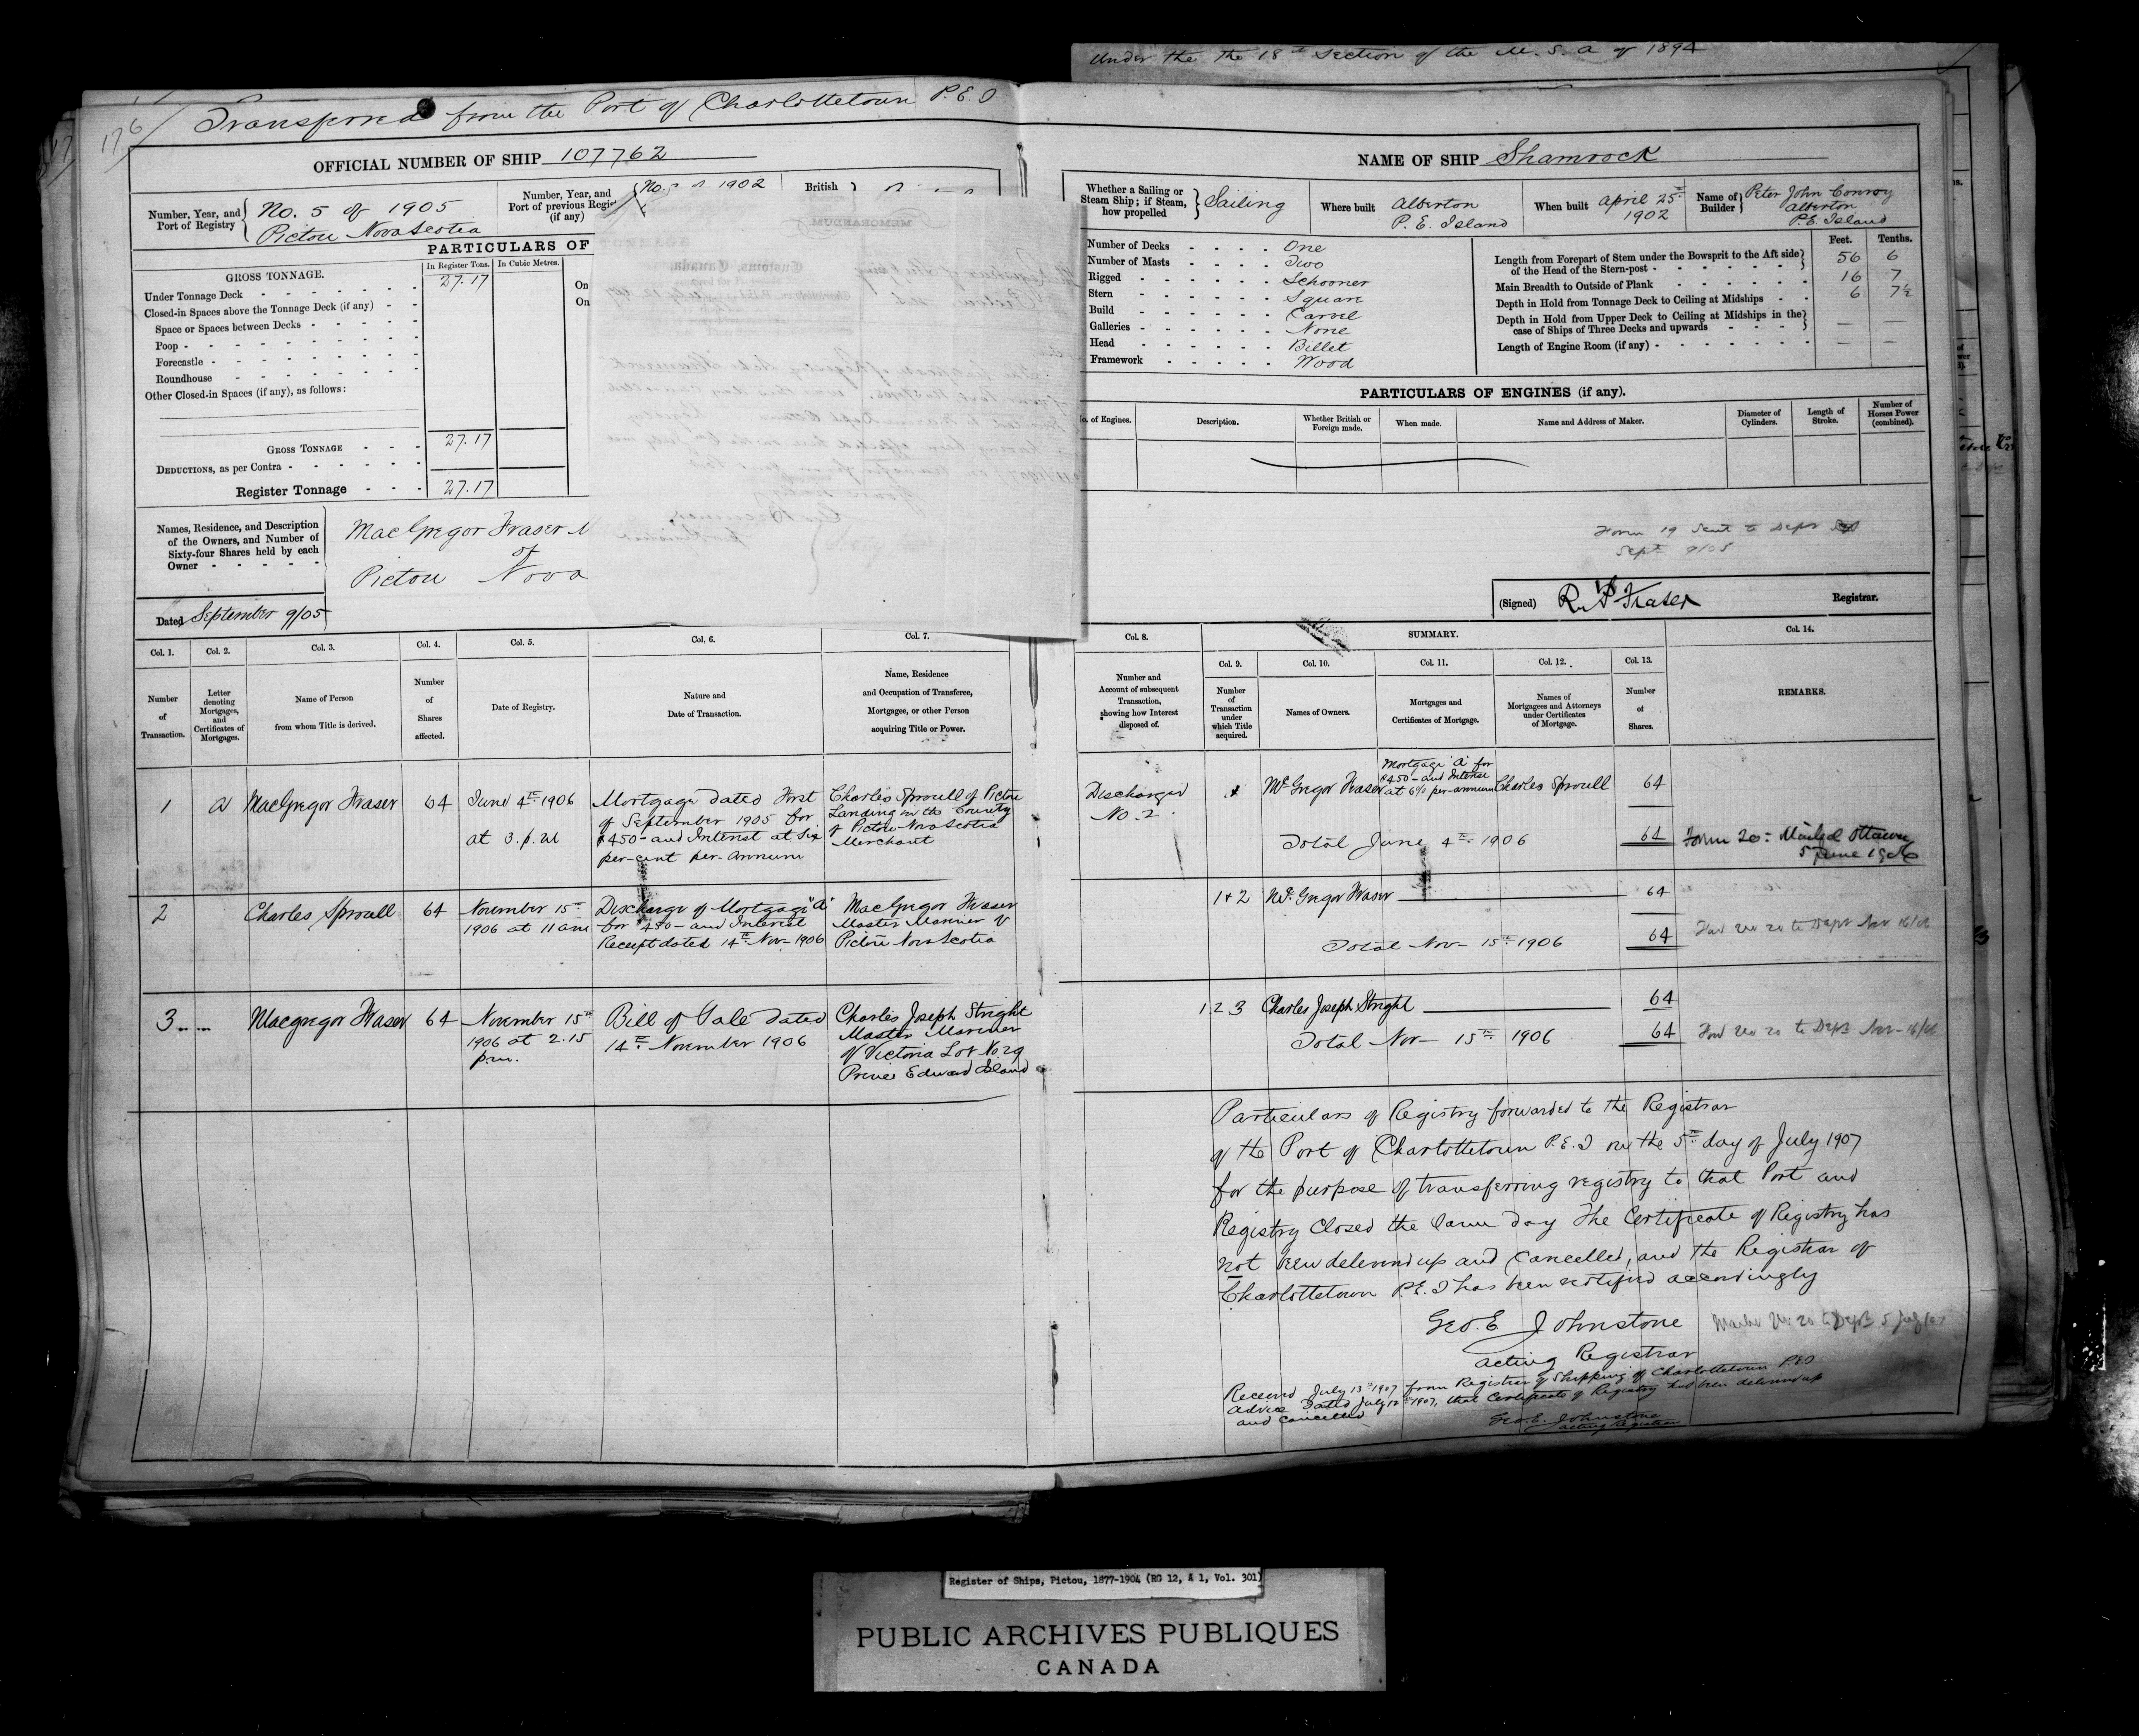 Under the the 18th Section of the M.S.A of 1894
176
Transferred from the Port of Charlottetown P.E.I
OFFICIAL NUMBER OF SHIP 107762
Number, Year, and Port of Registry No. 5 of 1905
Pictou Nova Scotia
Number, Year, and Port of previous Regist (if any) No. 1902
British
PARTICULARS OF
GROSS TONNAGE.
In Register Tons. In Cubic Metres.
Under Tonnage Deck 27.17
On
Closed-in Spaces above the Tonnage Deck (if any)
On
Space or Spaces between Decks
Poop
Forecastle
Roundhouse
Other Closed-in Spaces (if any), as follows:
GROSS TONNAGE 27.17
DEDUCTIONS, as per Contra
Register Tonnage 27.17
Names, Residence, and Description of the Owners, and Number of Sixty-four Shares held by each Owner
MacGregor Fraser M
of
Pictou Nova
Dated September 9/05
MEMORANDUM
Customs, Canada,
NAME OF SHIP Shamrock
Whether a Sailing or Steam Ship; if Steam, how propelled Sailing
Where built Alberton
P.E. Island
When built April 25th
1902
Name of Builder Peter John Conroy
Alberton
P.E. Island
Number of Decks One
Number of Masts Two
Rigged Schooner
Stern Square
Build Carvel
Galleries None
Head Billet
Framework Wood
Feet. Tenths.
Length from Forepart of Stem under the Bowsprit to the Aft side of the Head of the Stern-post 56 6
Main Breadth to Outside of Plank 16 7
Depth in Hold from Tonnage Deck to Ceiling at Midships 6 7½
Depth in Hold from Upper Deck to Ceiling at Midships in the case of Ships of Three Decks and upwards — —
Length of Engine Room (if any) — —
PARTICULARS OF ENGINES (if any).
o. of Engines. Description. Whether British or Foreign made. When made. Name and Address of Maker. Diameter of Cylinders. Length of Stroke. Number of Horses Power (combined).
Form 19 sent to Dept
Sept 9/05
(Signed) Fraser Registrar.
Col. 1. Col. 2. Col. 3. Col. 4. Col. 5. Col. 6. Col. 7.
Number of Transaction.
Letter denoting Mortgages, and Certificates of Mortgages.
Name of Person from whom Title is derived.
Number of Shares affected.
Date of Registry.
Nature and Date of Transaction.
Name, Residence and Occupation of Transferee, Mortgagee, or other Person acquiring Title or Power.
Col. 8. SUMMARY. Col. 14.
Col. 9. Col. 10. Col. 11. Col. 12. Col. 13.
Number and Account of subsequent Transaction, showing how Interest disposed of.
Number of Transaction under which Title acquired.
Names of Owners.
Mortgages and Certificates of Mortgage.
Names of Mortgagees and Attorneys under Certificates of Mortgage.
Number of Shares.
REMARKS.
1 A MacGregor Fraser 64
June 4th 1906
at 3. p.m
Mortgage dated First
of September 1905 for
$450- and Interest at Six
per-cent per-annum
Charles Sproull of Pictou
Landing in the County
of Pictou Nova Scotia
Merchant
Discharged
No. 2.
McGregor Fraser
Mortgage "A" for
$450- and Interest
at 6% per-annum
Charles Sproull 64
Total June 4th 1906 64
Form 20: Mailed Ottawa
5 June 1906
2 Charles Sproull 64
November 15th
1906 at 11 am
Discharge of Mortgage "A"
for $450- and Interest
Receipt dated 14th Nov- 1906
MacGregor Fraser
Master Mariner of
Pictou Nova Scotia
1+2 McGregor Fraser 64
Total Nov- 15th 1906 64
No 20 to Dept Nov 16/06
3 Macgregor Fraser 64
November 15th
1906 at 2.15
p.m.
Bill of Sale dated
14th November 1906
Charles Joseph Stright
Master Mariner
of Victoria Lot No. 29
Prince Edward Island
1 2 3 Charles Joseph Stright 64
Total Nov- 15th 1906 64
No 20 to Dept Nov- 16/06
Particulars of Registry forwarded to the Registrar
of the Port of Charlottetown P.E.I on the 5th day of July 1907
for the purpose of transferring registry to that Port and
Registry Closed the same day The Certificate of Registry has
not been delivered up and Cancelled, and the Registrar of
Charlottetown P.E.I has been notified accordingly
Geo. E. Johnstone
acting Registrar
No: 20 to Dept 5 July 1907
Received July 13th 1907 from Registrar of Shipping of Charlottetown P.E.I
Advice Dated July 12th 1907, that Certificate of Registry had been delivered up
and Cancelled
Geo. E. Johnstone
acting Registrar
Register of Ships, Pictou, 1877-1904 (RG 12, A 1, Vol. 301)
PUBLIC ARCHIVES PUBLIQUES
CANADA